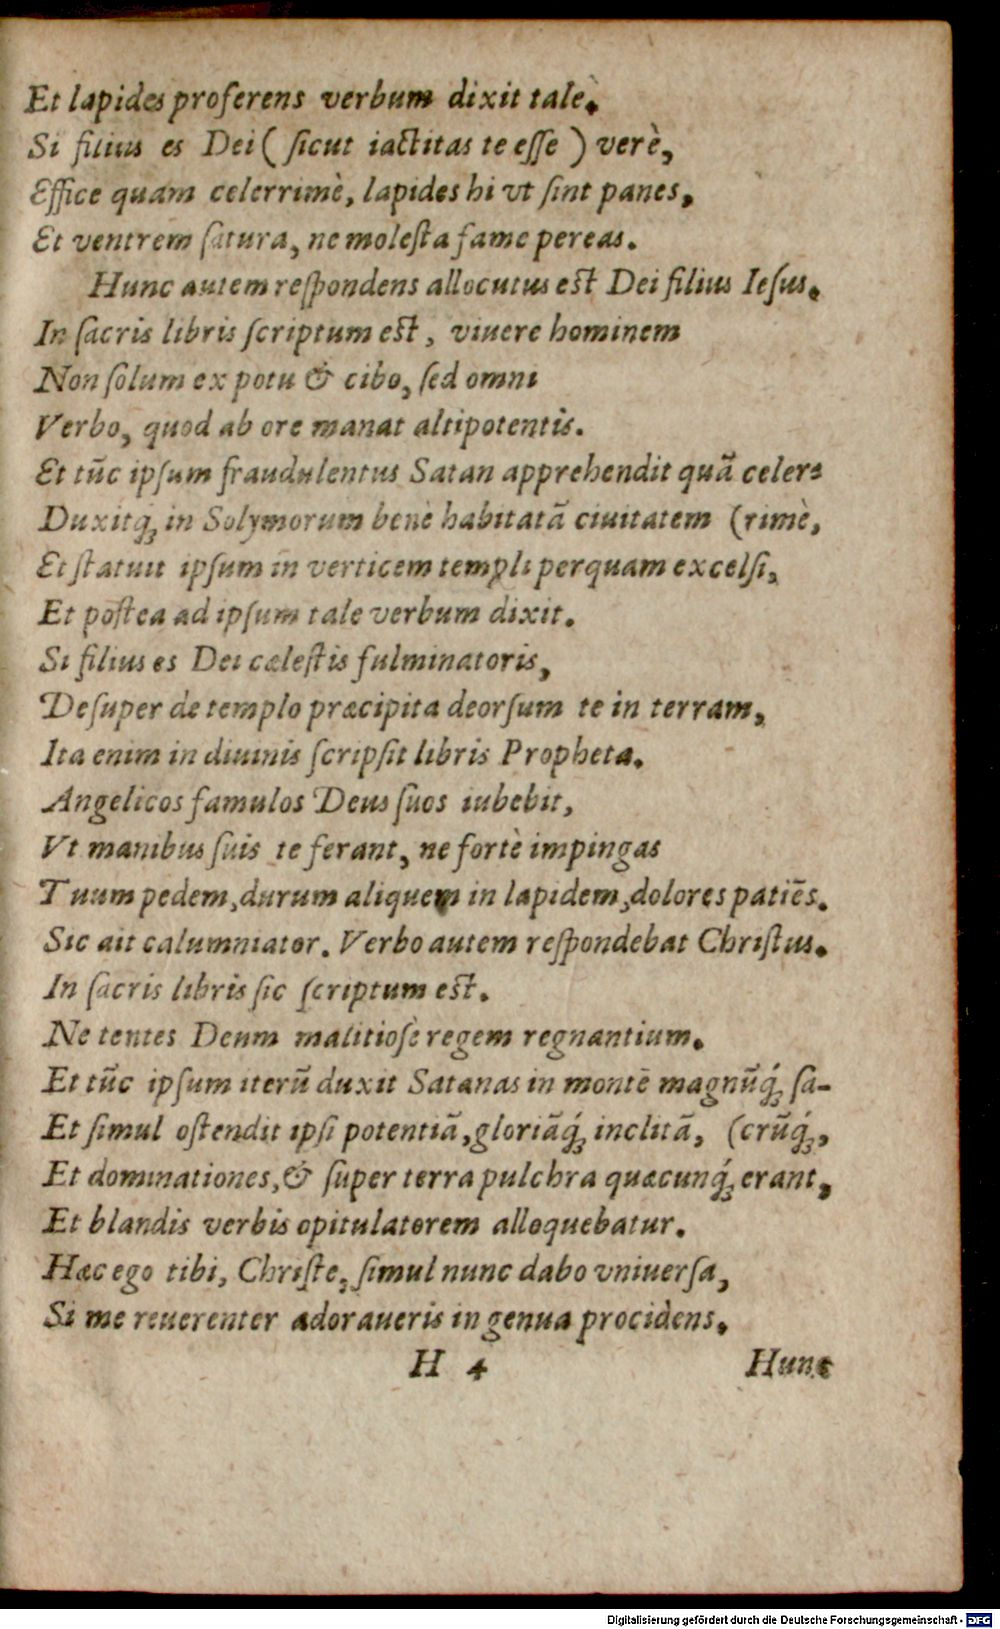 Et lapides proferens verbum dixit talè.
Si filius es Dei ( ſicut iactitas te eſſe ) verè,
Effice quam celerrimè, lapides hi vt ſint panes,
Et ventrem ſatura, ne moleſta fame pereas.
Hunc autem reſpondens allocutus eſt Dei filius Ieſus.
In ſacris libris ſcriptum eſt, viuere hominem
Non ſolum ex potu & cibo, ſed omni
Verbo, quod ab ore manat altipotentis.
Et tūc ipſum fraudulentus Satan apprehendit quā celer-
Duxitq́ꝫ in Solymorum benè habitatā ciuitatem (rimè,
Et ſtatuit ipſum in verticem templi perquam excelſi,
Et poſtea ad ipſum tale verbum dixit.
Si filius es Dei cæleſtis fulminatoris,
Deſuper de templo præcipita deorſum te in terram,
Ita enim in diuinis ſcripſit libris Propheta.
Angelicos famulos Deus ſuos iubebit,
Vt manibus ſuis te ferant, ne fortè impingas
Tuum pedem, durum aliquem in lapidem, dolores patiēs.
Sic ait calumniator. Verbo autem reſpondebat Chriſtus.
In ſacris libris ſic ſcriptum eſt.
Ne tentes Deum malitioſè regem regnantium.
Et tūc ipſum iterū duxit Satanas in montē magnūq́ꝫ ſa-
Et ſimul oſtendit ipſi potentiā, gloriāq́ꝫ inclitā, (crūq́ꝫ,
Et dominationes, & ſuper terra pulchra quæcunq́ꝫ erant,
Et blandis verbis opitulatorem alloquebatur.
Hæc ego tibi, Chriſte, ſimul nunc dabo vniuerſa,
Si me reuerenter adoraueris in genua procidens.
H 4 Hunc
Digitalisierung gefördert durch die Deutsche Forschungsgemeinschaft - DFG